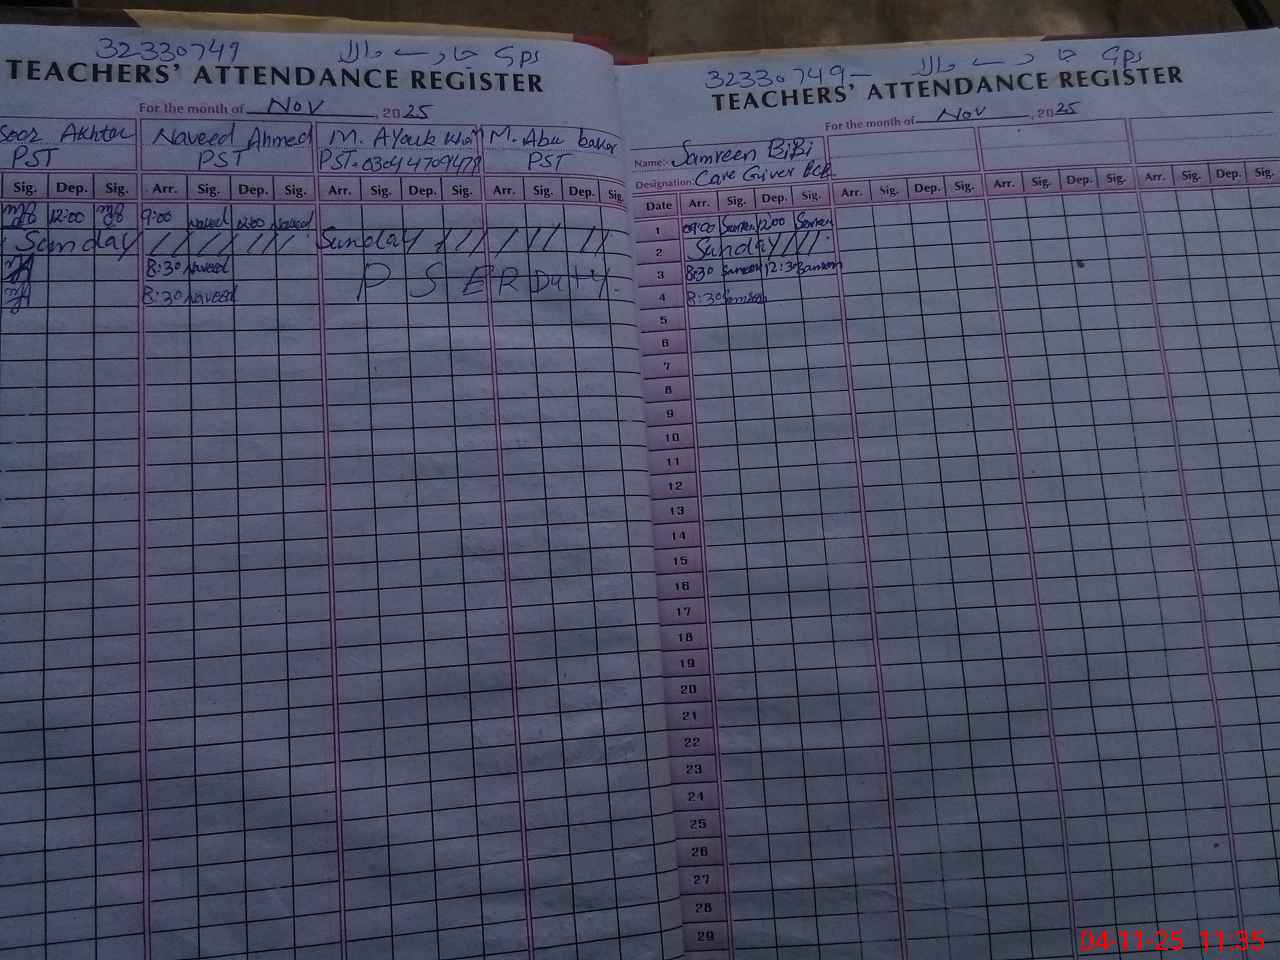 32330749 چاہ سے والا GPS
TEACHERS' ATTENDANCE REGISTER
For the month of Nov, 2025
Akhtar Naveed Ahmed M. Ayoub M. Abu bakar
PST PST PST. PST
Sig. Dep. Sig. Arr. Sig. Dep. Sig. Arr. Sig. Dep. Sig. Arr. Sig. Dep. Sig.
12:00 9:00 Naveed 12:00 Naveed
Sunday Sunday
8:30 Naveed P S E R Duty.
8:30 Naveed
32330749 والا GPS
TEACHERS' ATTENDANCE REGISTER
For the month of Nov, 2025
Name:- Samreen BiBi
Designation: Care Giver
Date Arr. Sig. Dep. Sig. Arr. Sig. Dep. Sig. Arr. Sig. Dep. Sig. Arr. Sig. Dep. Sig.
1 09:00 Samreen 12:00 Samreen
2 Sunday
3 8:30 Samreen 12:30 Samreen
4 8:30 Samreen
5
6
7
8
9
10
11
12
13
14
15
16
17
18
19
20
21
22
23
24
25
26
27
28
29
04-11-25 11:35